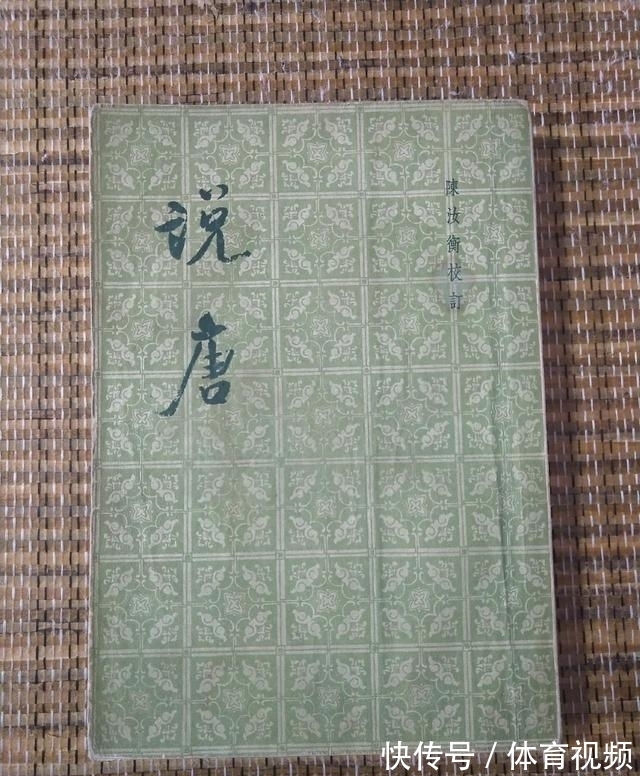 说唐
陳汝衡校訂
快传号 / 体育视频